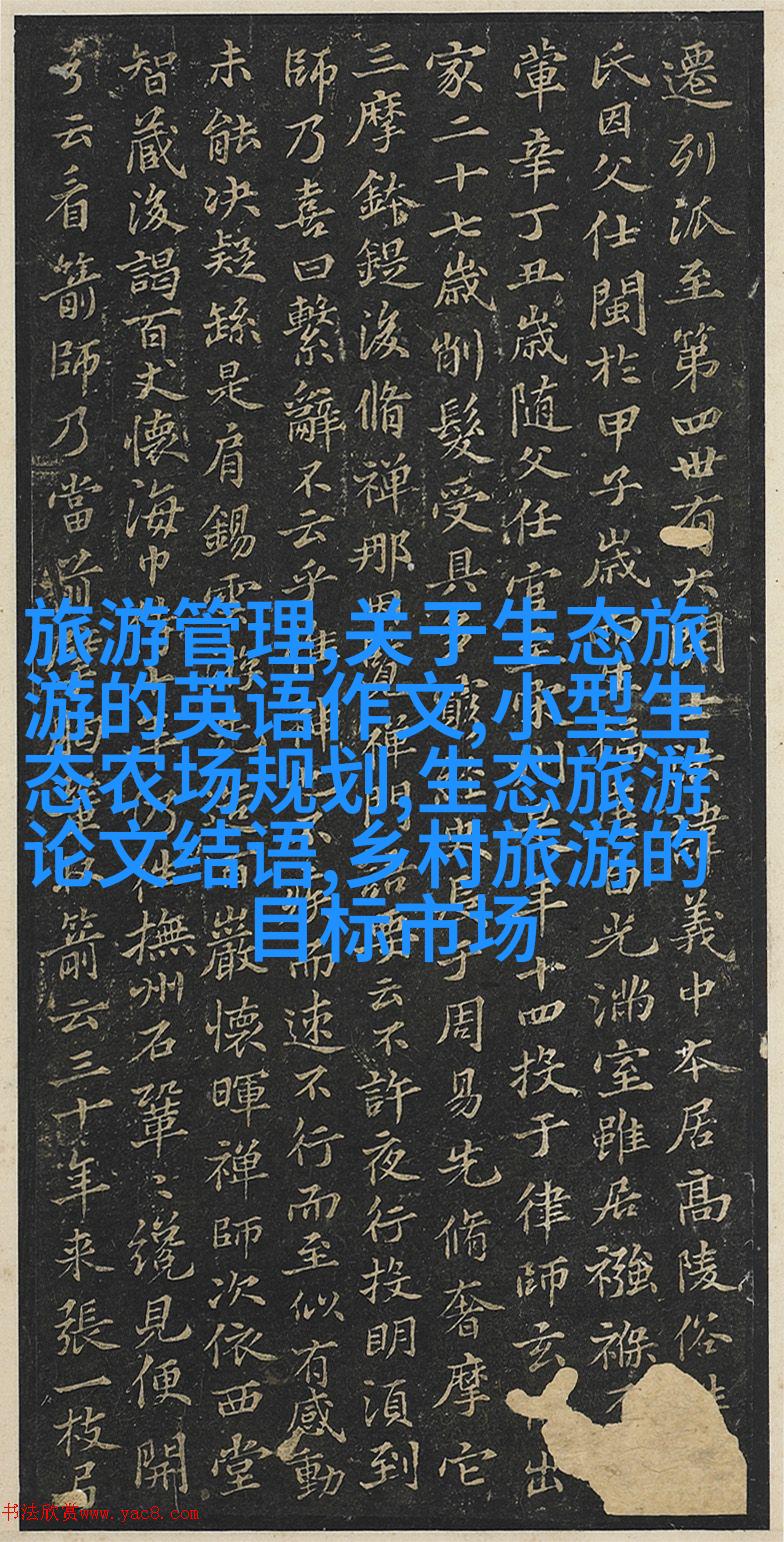 遷列派至第四世有大開士諱義中本居髙陵俗
氏因父仕閩於甲子歲光滿室雖居襁褓
葷辛丁丑歲随父任官至年十四投于律師玄出
家二十七歲削髮受具于周易先脩奢摩它
三摩鉢鍉後脩禅那云不許夜行投明湏到
師乃喜曰繫辭不云乎而速不行而至似有感動
未能决疑繇是肩錫雲巖懷暉禅師次依西堂
智藏後謁百丈懷海中往撫州石鞏〻纔見便開
弓云看箭師乃當前箭云三十年来張一枝弓
旅游管理,关于生态旅
游的英语作文,小型生
态农场规划,生态旅游
论文结语,乡村旅游的
目标市场
书法欣赏www.yac8.com